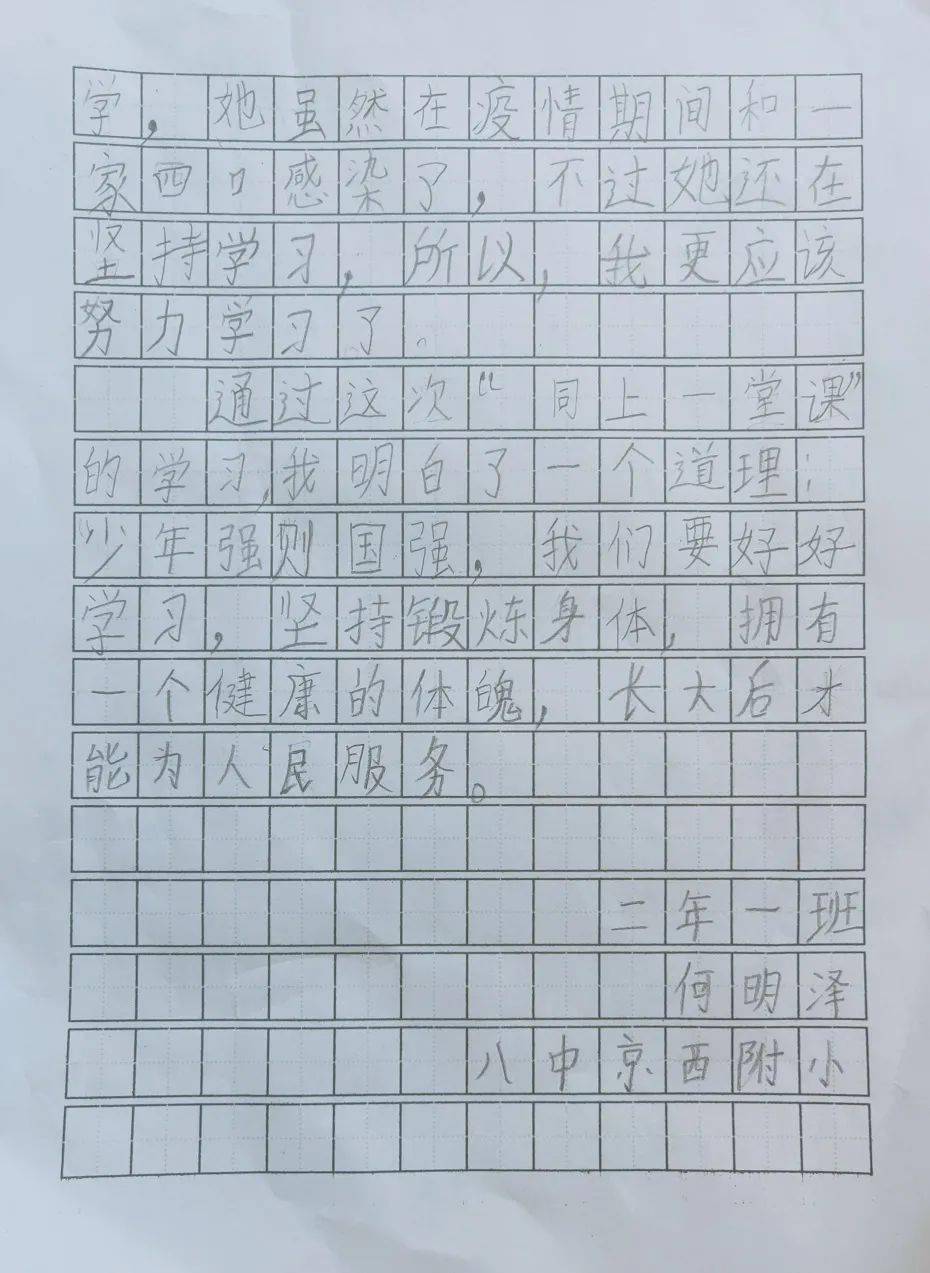 学，她虽然在疫情期间和一
家四口感染了，不过她还在
坚持学习，所以，我更应该
努力学习了。
通过这次“同上一堂课”
的学习，我明白了一个道理：
“少年强则国强，我们要好好
学习，坚持锻炼身体，拥有
一个健康的体魄，长大后才
能为人民服务。
二年一班
何明泽
八中京西附小